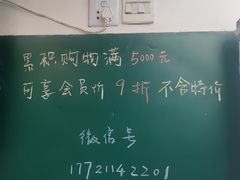 累积购物满5000元
可享会员价9折不含特价
微信号
17721142201